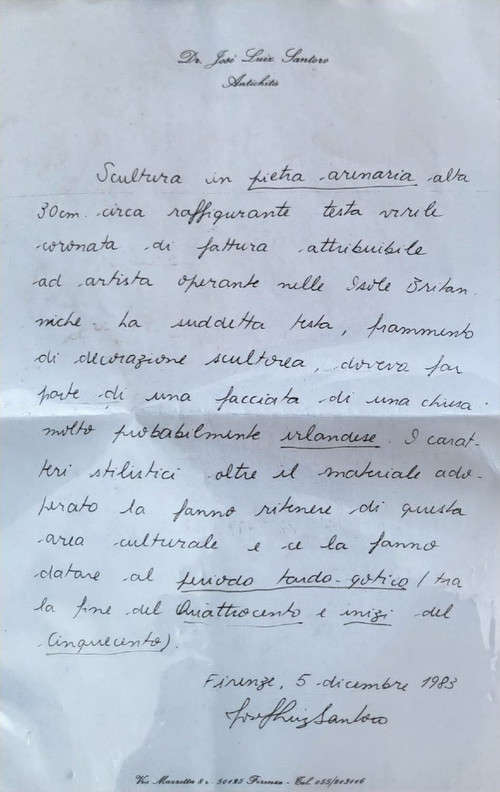 Dr. José Luiz Santoro
Antichità
Scultura in pietra arenaria alta
30cm. circa raffigurante testa virile
coronata di fattura attribuibile
ad artista operante nelle Isole Britan-
niche. La suddetta testa, frammento
di decorazione scultorea, doveva far
parte di una facciata di una chiesa
molto probabilmente irlandese. I carat-
teri stilistici oltre il materiale ado-
perato la fanno ritenere di questa
area culturale e ce la fanno
datare al periodo tardo-gotico (tra
la fine del Quattrocento e inizi del
Cinquecento).
Firenze, 5 dicembre 1983
José Luiz Santoro
50125 Firenze - Tel. 055/